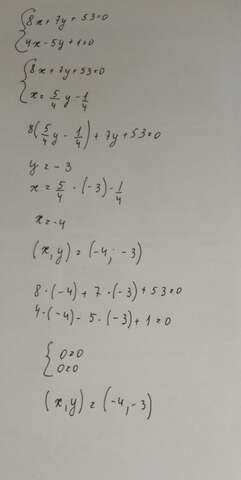 {8x+7y+53=0
{4x-5y+1=0
{8x+7y+53=0
{x=5/4y-1/4
8(5/4y-1/4)+7y+53=0
y=-3
x=5/4·(-3)-1/4
x=-4
(x,y)=(-4;-3)
8·(-4)+7·(-3)+53=0
4·(-4)-5·(-3)+1=0
{0=0
{0=0
(x,y)=(-4,-3)